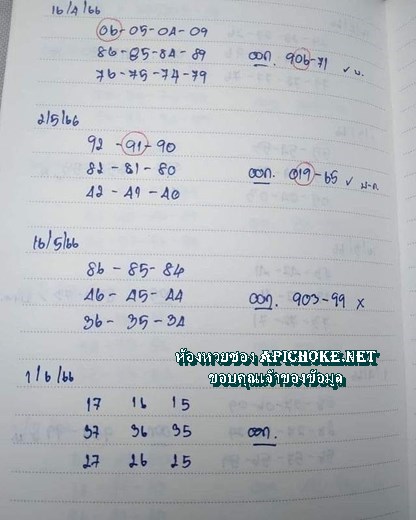 16/4/66
06-05-04-09
86-85-84-89 ออก. 906-71 ✓ บ.
76-75-74-79
2/5/66
92-91-90
82-81-80 ออก. 019-65 ✓ บ-ก.
42-41-40
16/5/66
86-85-84
46-45-44 ออก. 903-99 X
36-35-34
ห้องหวยซอง APICHOKE.NET
ขอบคุณเจ้าของข้อมูล
1/6/66
17 16 15
37 36 35 ออก.
27 26 25